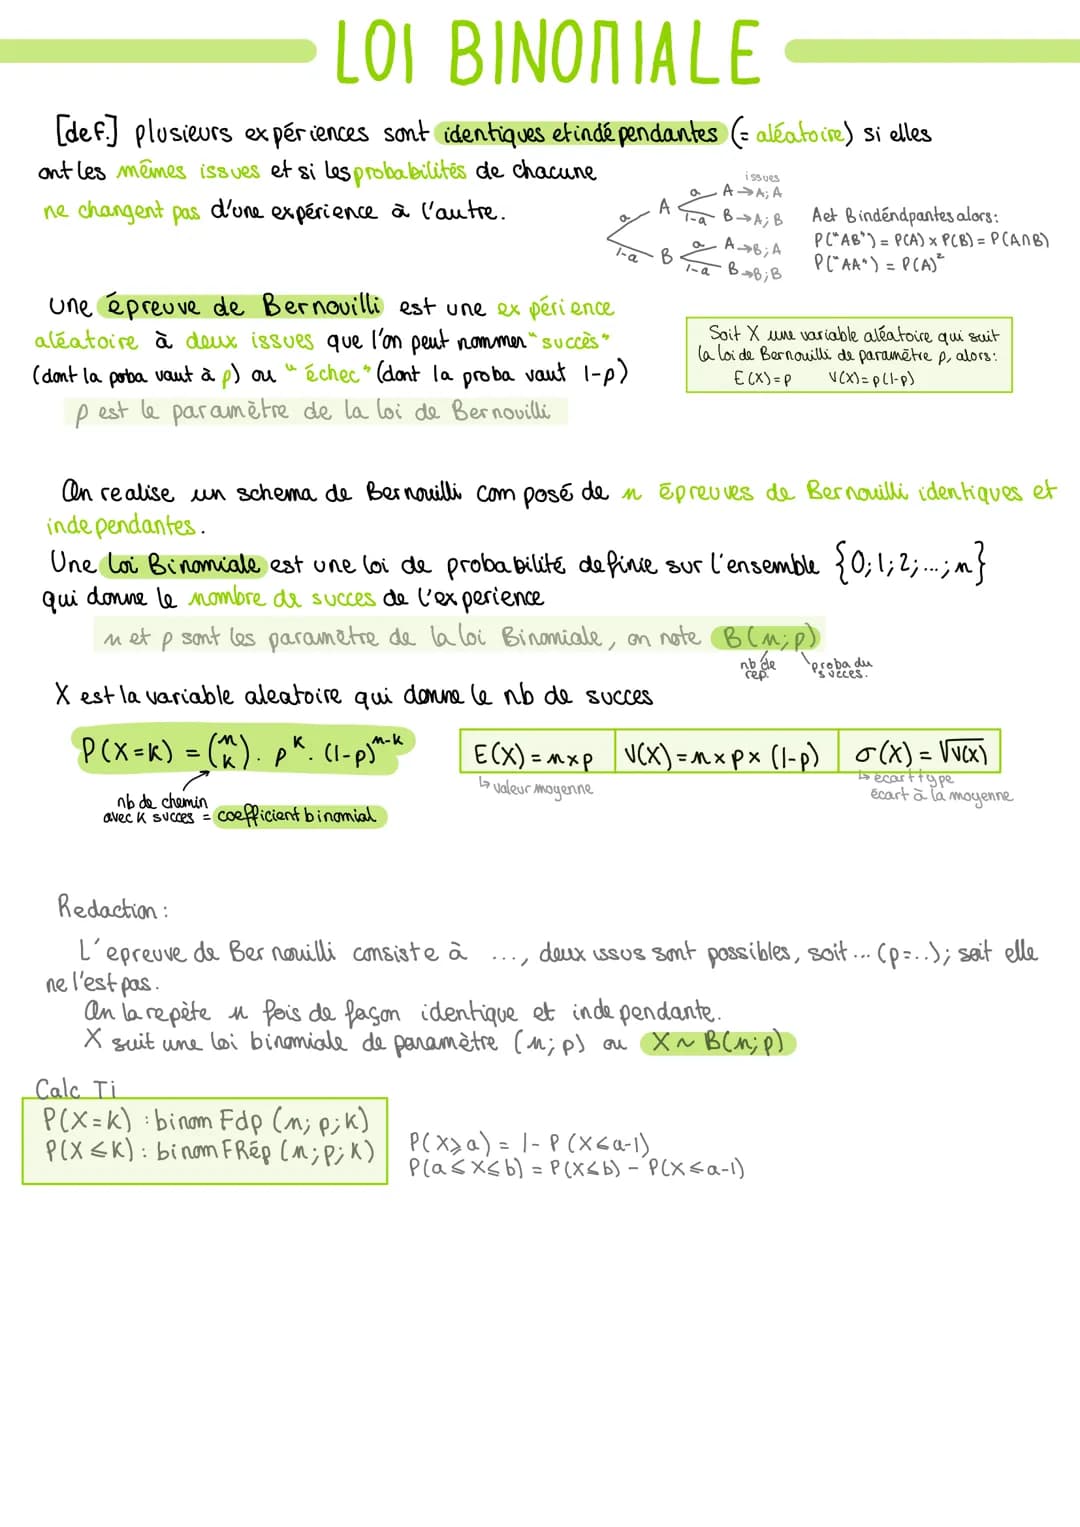 LOI BINOMIALE
[def.] plusieurs expériences sont identiques et indépendantes (= aléatoire) si elles
ont les mêmes issues et si les probabilités de chacune
ne changent pas d'une expérience à l'autre.
issues
a A → A; A
a A
1-a B → A; B
a A → B; A
1-a B
1-a B → B; B
A et B indéndpantes alors:
P("AB") = P(A) x P(B) = P(A∩B)
P("AA") = P(A)²
une épreuve de Bernouilli est une expérience
aléatoire à deux issues que l'on peut nommer "succès"
(dont la poba vaut à p) ou "échec" (dont la proba vaut 1-p)
p est le paramètre de la loi de Bernouilli
Soit X une variable aléatoire qui suit
la loi de Bernouilli de paramètre p, alors:
E(X)=p V(X)=p(1-p)
On realise un schema de Bernouilli composé de n épreuves de Bernouilli identiques et
independantes.
Une Loi Binomiale est une loi de probabilité definie sur l'ensemble {0;1;2;...;n}
qui donne le nombre de succes de l'experience
n et p sont les paramètre de la loi Binomiale, on note B(n;p)
nb de rep.
proba du succes.
X est la variable aleatoire qui donne le nb de succes
P(X=k) = (n k) . p^k . (1-p)^n-k
nb de chemin
avec k succes = coefficient binomial
E(X) = n x p
V(X) = n x p x (1-p)
σ(X) = √V(X)
↳ valeur moyenne
↳ ecart type
écart à la moyenne
Redaction :
L'epreuve de Bernouilli consiste à ..., deux issus sont possibles, soit ... (p=..); soit elle
ne l'est pas.
On la repète n fois de façon identique et independante.
X suit une loi binomiale de paramètre (n; p) ou X ~ B(n;p)
Calc Ti
P(X=k) : binom Fdp (n; p; k)
P(X ≤ k) : binom FRép (n; p; k)
P(X ≥ a) = 1 - P(X ≤ a-1)
P(a ≤ X ≤ b) = P(X ≤ b) - P(X ≤ a-1)